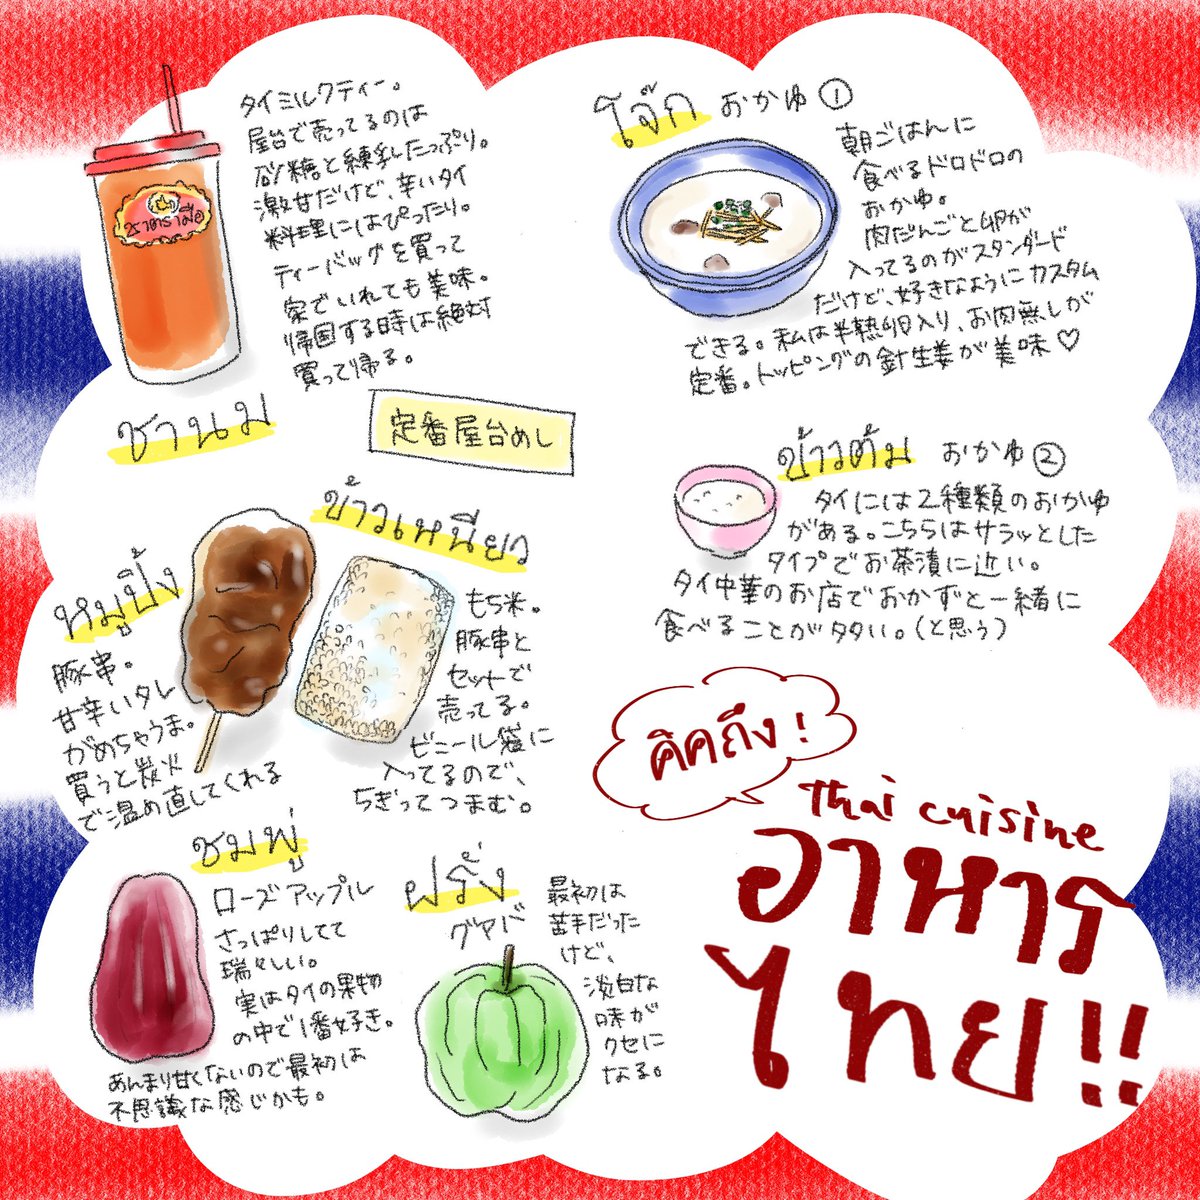 タイミルクティー。
屋台で売ってるのは
砂糖と練乳したっぷり。
激甘だけど、辛いタイ
料理にはぴったり。
ティーバッグを買って
家でいれても美味。
帰国する時は絶対
買って帰る。
ชาตรามือ
ชานม
โจ๊ก おかゆ①
朝ごはんに
食べるドロドロの
おかゆ。
肉だんごと卵が
入ってるのがスタンダード
だけど、好きなようにカスタム
できる。私は半熟卵入り、お肉無しが
定番。トッピングの針生姜が美味♡
定番屋台めし
ข้าวต้ม おかゆ②
タイには2種類のおかゆ
がある。こちらはサラッとした
タイプでお茶漬に近い。
タイ中華のお店でおかずと一緒に
食べることが多い。(と思う)
ข้าวเหนียว
もち米。
豚串と
セットで
売ってる。
ビニール袋に
入ってるので、
ちぎってつまむ。
หมูปิ้ง
豚串。
甘辛いタレ
がめちゃうま。
買うと炭火
で温め直してくれる
ชมพู่
ローズアップル
さっぱりしてて
瑞々しい。
実はタイの果物
の中で1番好き。
あんまり甘くないので最初は
不思議な感じかも。
ฝรั่ง
グアバ
最初は
苦手だった
けど、
淡白な
味が
クセに
なる。
คิดถึง!
thai cuisine
อาหาร
ไทย!!